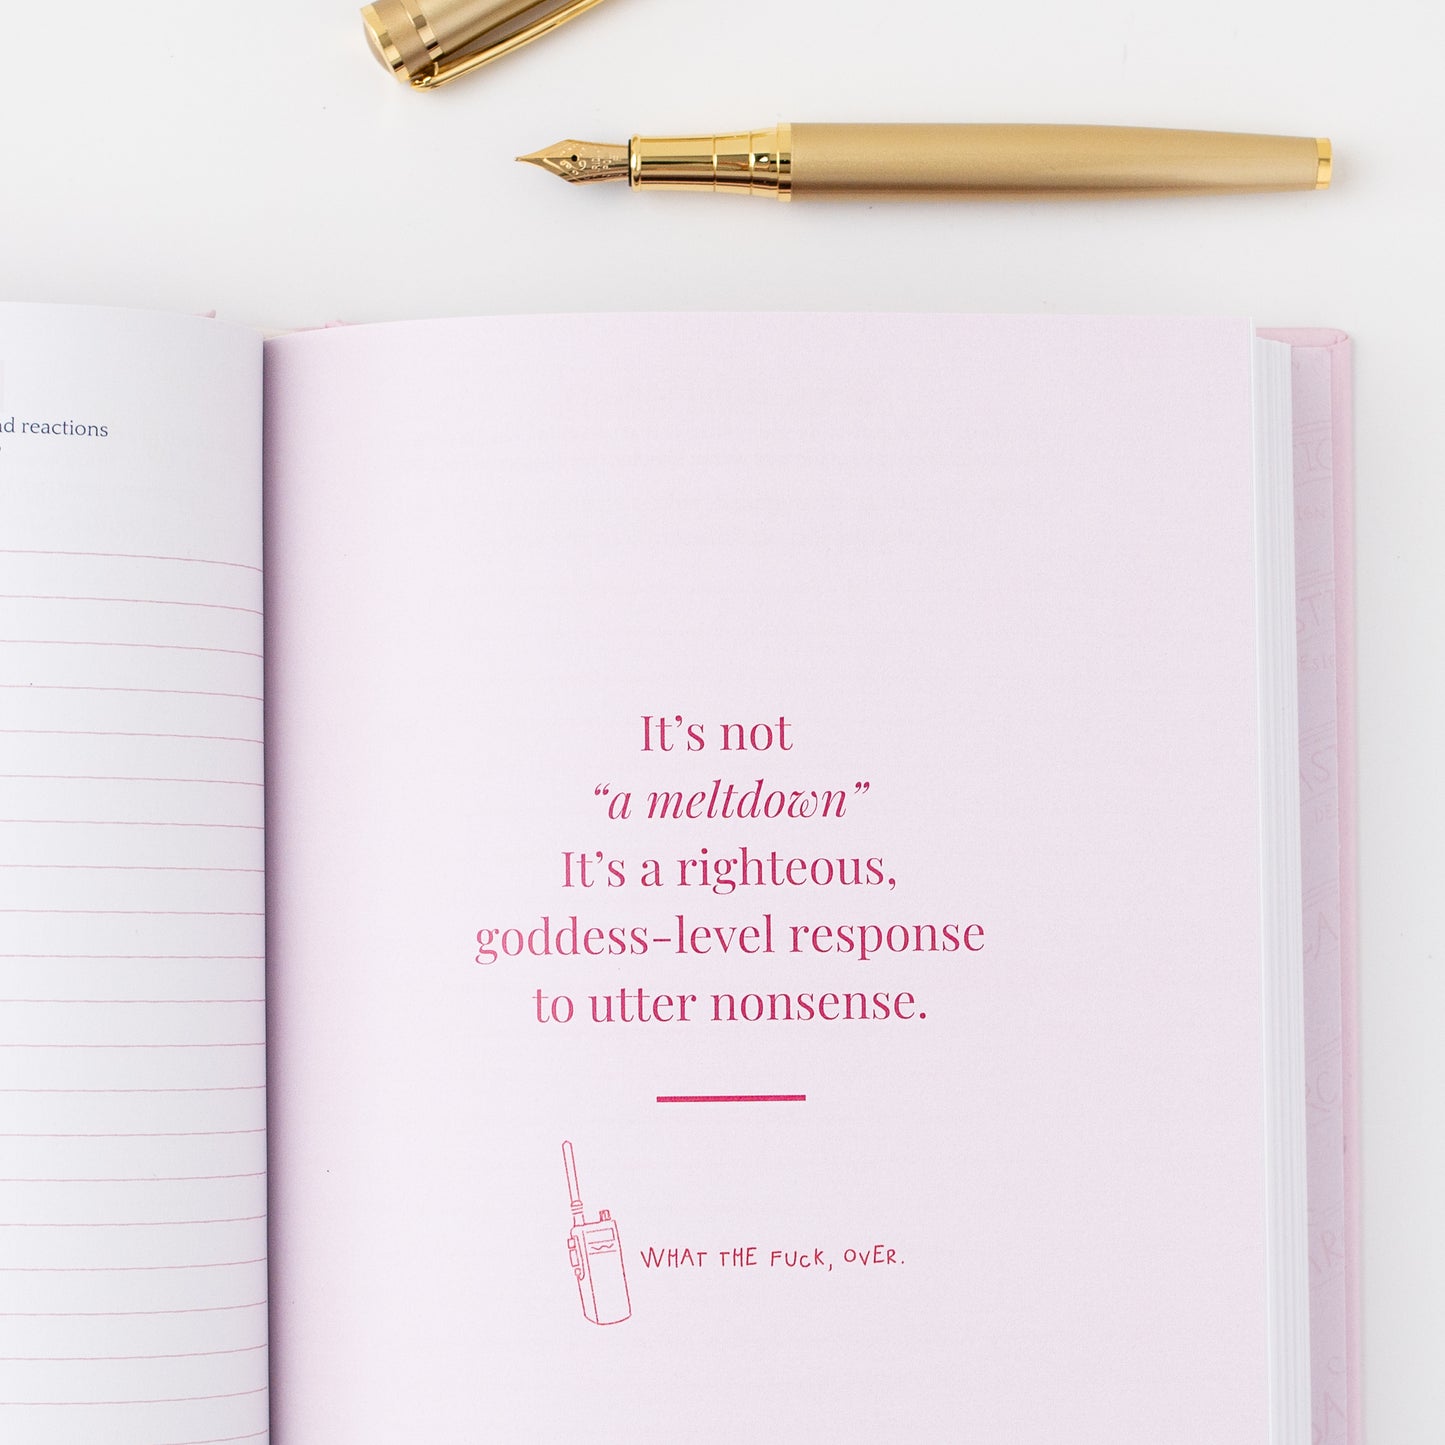 reactions
It's not
“a meltdown”
It's a righteous,
goddess-level response
to utter nonsense.
WHAT THE FUCK, OVER.